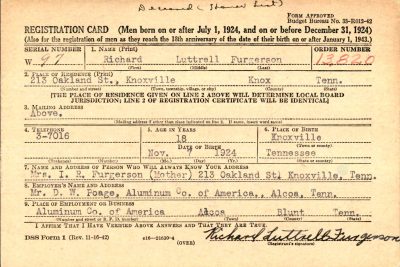 Deceased (Honor List)
FORM APPROVED
Budget Bureau No. 33-R012-42
REGISTRATION CARD—(Men born on or after July 1, 1924, and on or before December 31, 1924)
(Also for the registration of men as they reach the 18th anniversary of the date of their birth on or after January 1, 1943.)
SERIAL NUMBER 1. NAME (Print) ORDER NUMBER
W 97 Richard Luttrell Furgerson 13820
2. PLACE OF RESIDENCE (Print)
213 Oakland St., Knoxville Knox Tenn.
(Number and street) (Town, township, village, or city) (County) (State)
[THE PLACE OF RESIDENCE GIVEN ON LINE 2 ABOVE WILL DETERMINE LOCAL BOARD
JURISDICTION; LINE 2 OF REGISTRATION CERTIFICATE WILL BE IDENTICAL]
3. MAILING ADDRESS
Above.
(Mailing address if other than place indicated on line 2. If same, insert word same)
4. TELEPHONE 5. AGE IN YEARS 6. PLACE OF BIRTH
3-7016 18 Knoxville
DATE OF BIRTH (Town or county)
Nov. 1924 Tennessee
7. NAME AND ADDRESS OF PERSON WHO WILL ALWAYS KNOW YOUR ADDRESS
Mrs. I. R. Furgerson (Mother) 213 Oakland St. Knoxville, Tenn.
8. EMPLOYER'S NAME AND ADDRESS
Mr. D. W. Poage, Aluminum Co. of America., Alcoa, Tenn.
9. PLACE OF EMPLOYMENT OR BUSINESS
Aluminum Co. of America Alcoa Blunt Tenn.
(Town) (County) (State)
I AFFIRM THAT I HAVE VERIFIED ABOVE ANSWERS AND THAT THEY ARE TRUE.
DSS Form 1 (Rev. 11-16-42) (OVER) Richard Luttrell Furgerson
(Registrant's signature)